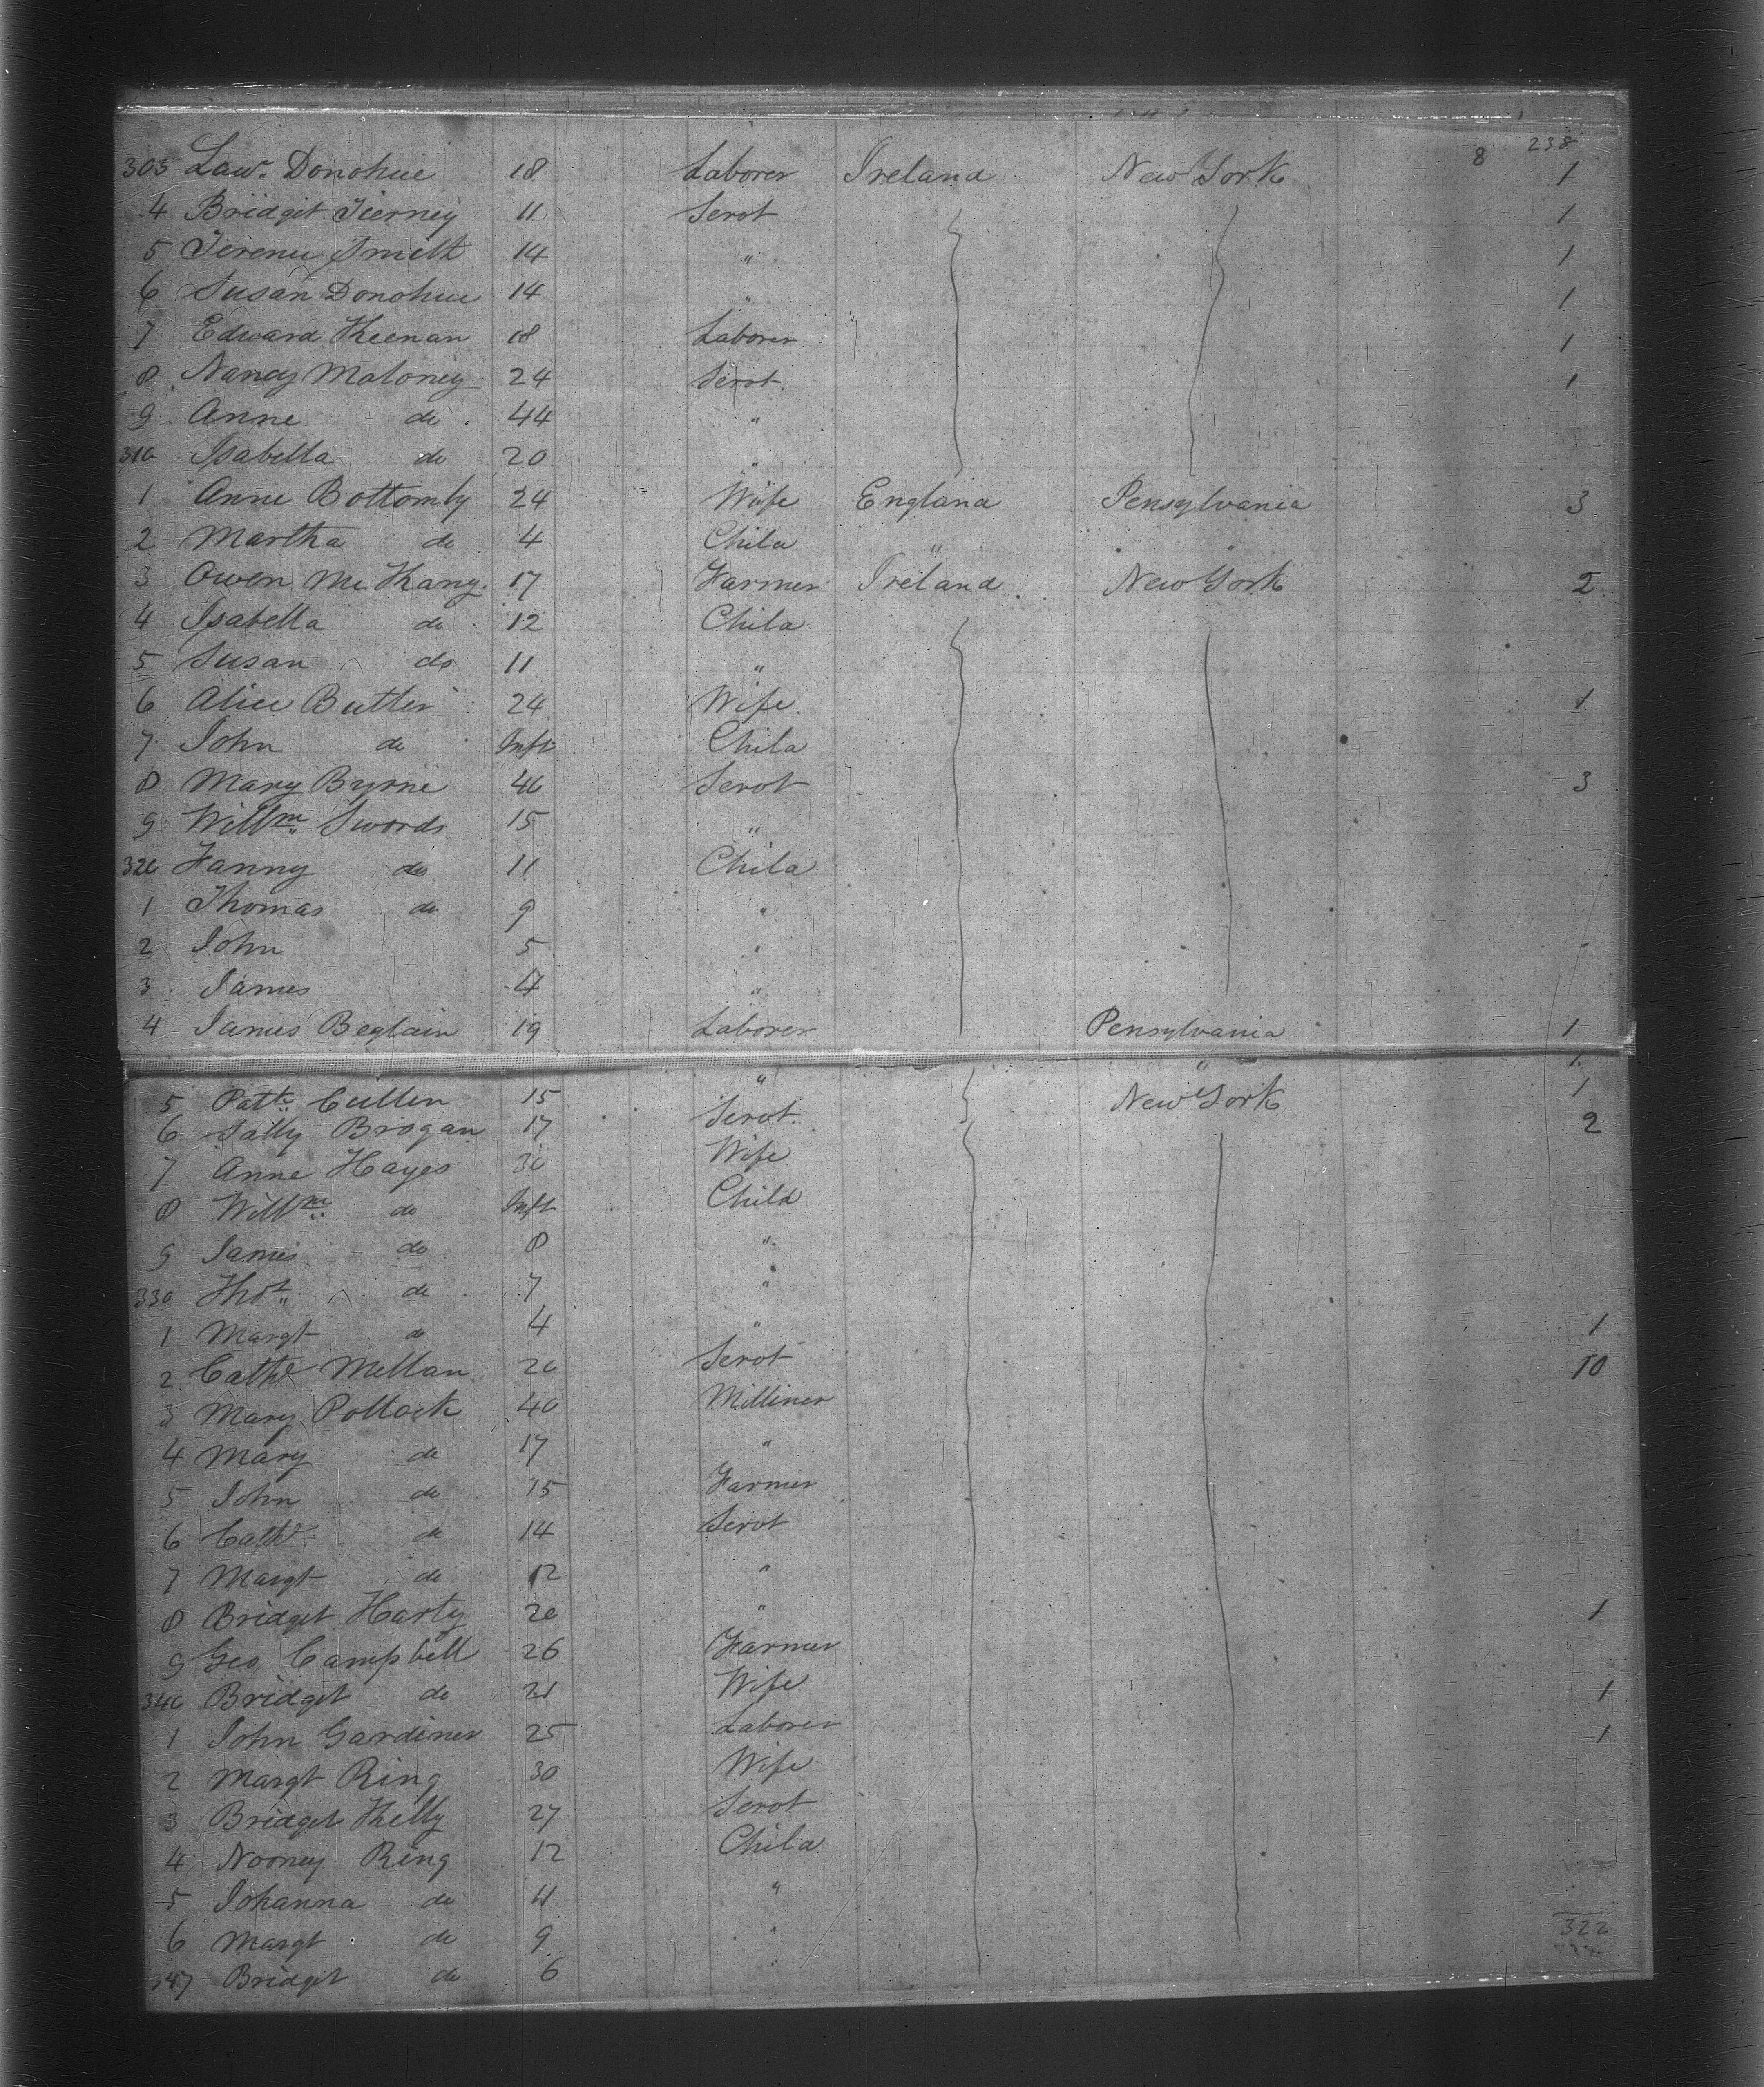 8 238
303 Lawr. Donohue 18 Laborer Ireland New York 1
4 Bridgit Tierney 11 Servt 1
5 Terence Smith 14 " 1
6 Susan Donohue 14 " 1
7 Edward Keenan 18 Laborer 1
8 Nancy Maloney 24 Servt 1
9 Anne do 44 "
310 Isabella do 20 "
1 Anne Bottomly 24 Wife England Pensylvania 3
2 Martha do 4 Child " "
3 Owen Mc Kany 17 Farmer Ireland New York 2
4 Isabella do 12 Child
5 Susan do 11 "
6 Alice Butler 24 Wife 1
7 John do Inft Child
8 Mary Byrne 46 Servt 3
9 Willm Swords 15 "
320 Fanny do 11 Child
1 Thomas do 9 "
2 John 5 "
3 James 4 "
4 James Beglain 19 Laborer Pensylvania 1
5 Patk Cullen 15 " " 1
6 Sally Brogan 17 Servt New York 1
7 Anne Hayes 30 Wife 2
8 Willm do Inft Child
9 James do 8 "
330 Thos do 7 "
1 Margt do 4 "
2 Cathe Mellan 20 Servt 1
3 Mary Pollock 40 Milliner 10
4 Mary do 17 "
5 John do 15 Farmer
6 Cathe do 14 Servt
7 Margt do 12 "
8 Bridget Harty 20 " 1
9 Geo Campbell 26 Farmer
340 Bridget do 21 Wife 1
1 John Gardiner 25 Laborer 1
2 Margt Ring 30 Wife
3 Bridget Kelly 27 Servt
4 Nooney Ring 12 Child
5 Johanna do 11 "
6 Margt do 9 " 322
347 Bridgit do 6 "